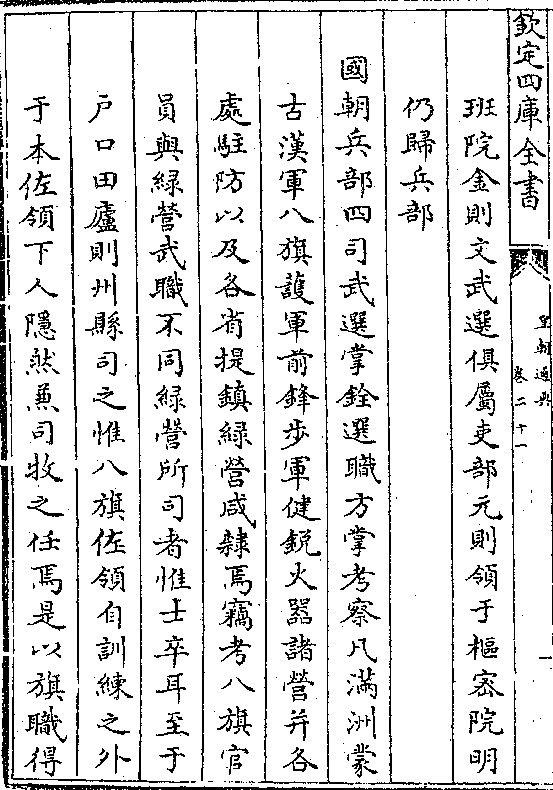 欽定四庫全書
皇朝通典
卷二十一
一
班院金則文武選俱屬吏部元則領于樞密院明
仍歸兵部
國朝兵部四司武選掌銓選職方掌考察凡滿洲蒙
古漢軍八旗䕶軍前鋒步軍健鋭火器諸營并各
處駐防以及各省提鎮緑營咸隸焉竊考八旗官
員與緑營武職不同緑營所司者惟士卒耳至于
戸口田廬則州縣司之惟八旗佐領自訓練之外
于本佐領下人隱然兼司牧之任焉是以旗職得